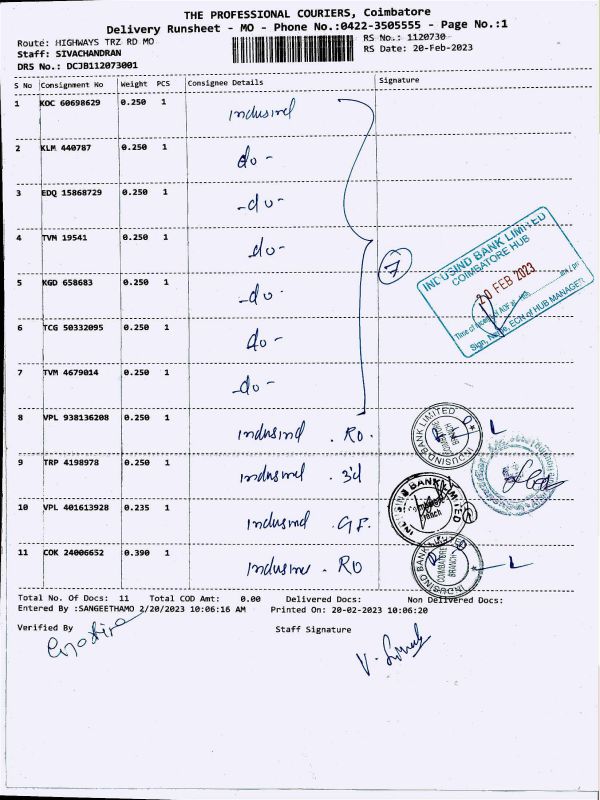 THE PROFESSIONAL COURIERS, Coimbatore
Delivery Runsheet - MO - Phone No.:0422-3505555 - Page No.:1
Route: HIGHWAYS TRZ RD MO
RS No.: 1120730
Staff: SIVACHANDRAN
RS Date: 20-Feb-2023
DRS No.: DCJB112073001
S No Consignment No Weight PCS Consignee Details Signature
1 KOC 60698629 0.250 1 indusind
2 KLM 440787 0.250 1 do -
3 EDQ 15868729 0.250 1 - do -
4 TVM 19541 0.250 1 do -
5 KGD 658683 0.250 1 - do -
6 TCG 50332095 0.250 1 do -
7 TVM 4679014 0.250 1 - do -
7
INDUSIND BANK LIMITED
COIMBATORE HUB
20 FEB 2023
Sign, Name, ECN of HUB MANAGER
8 VPL 938136208 0.250 1 indusind . RO.
9 TRP 4198978 0.250 1 indusind .
10 VPL 401613928 0.235 1 indusind . GF.
11 COK 24006652 0.390 1 indusind . RO
INDUSIND BANK LIMITED
INDUSIND BANK LIMITED
INDUSIND BANK LIMITED
COIMBATORE
BRANCH
Total No. Of Docs: 11 Total COD Amt: 0.00 Delivered Docs: Non Delivered Docs:
Entered By :SANGEETHAMO 2/20/2023 10:06:16 AM Printed On: 20-02-2023 10:06:20
Verified By Staff Signature